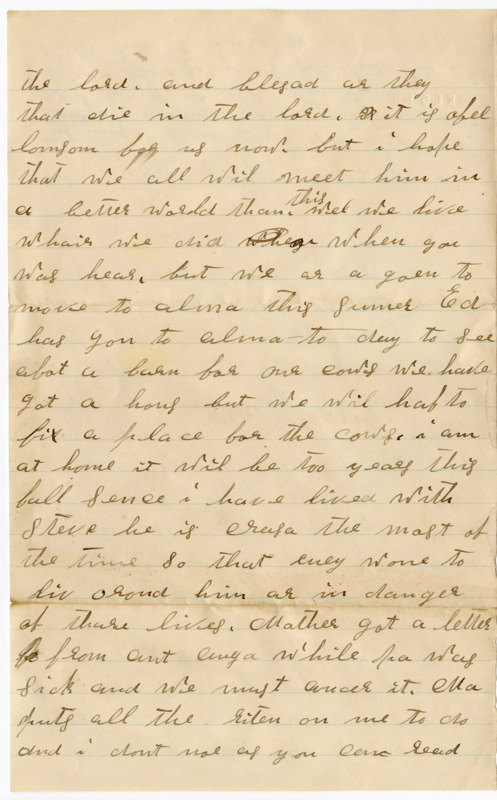 the lord. and blesad ar they
that die in the lord. it is ofel
lomsom for us now. but i hope
that we all wil meet him in
a better world than this. wel we live
whair we did when you
was hear. but we ar a goen to
move to alma this sumer Ed
has gon to alma to day to see
abot a barn for our cows we have
got a hous but we wil haf to
fix a place for the cows. i am
at home it wil be too years this
fall sence i have lived with
Steve he is crasa the most of
the time so that eney wone to
liv orond him ar in danger
of thare lives. Mother got a letter
from ant anga while pa was
sick and we must ancer it. Ma
puts all the riten on me to do
and i dont noe as you can read